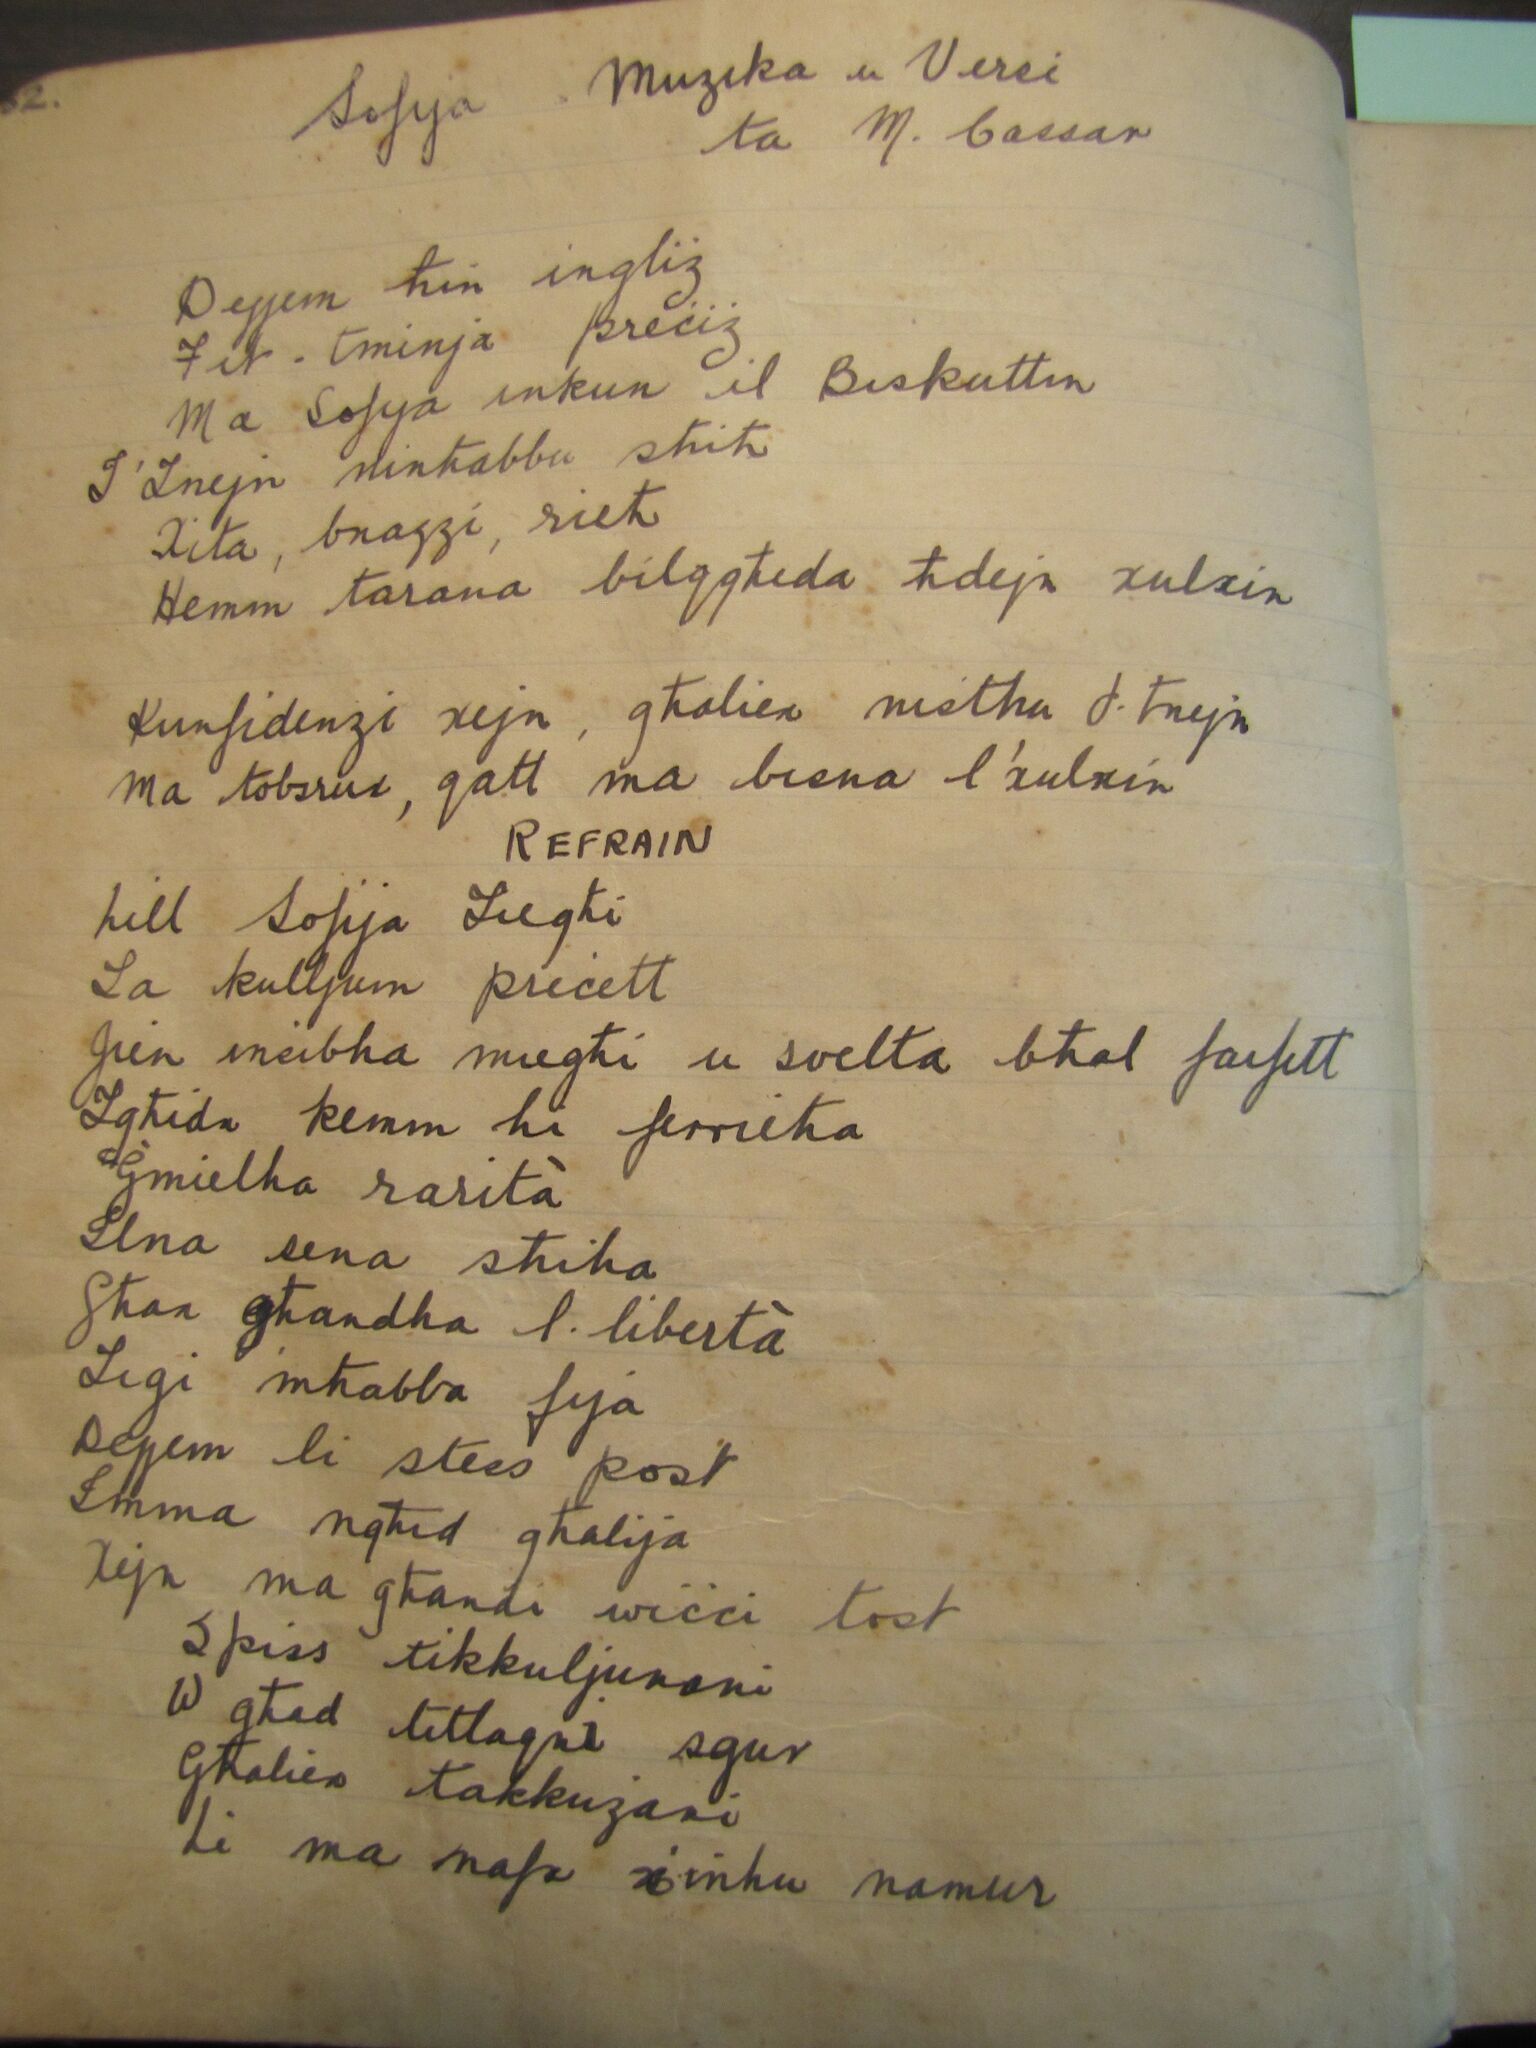 52.
Sofija Muzika u Versi
ta M. Cassar
Dejjem ħin ingliż
Fit-tminja preċiż
Ma Sofija inkun il Biskuttin
T'Tnejn ninħabbu sħiħ
Xita, bnazzi, rieħ
Hemm tarana bilqgħeda ħdejn xulxin
Kunfidenzi xejn, għaliex nistħu t-tnejn
Ma tobsrux, qatt ma bisna l'xulxin
REFRAIN
Lill Sofija Tiegħi
Ta kulljum priċett
Jien insibha miegħi u svelta bħal farfett
Tgħidx kemm hi ferrieħa
Ġmielha rarità
Ilna sena sħiħa
Għax għandha l-libertà
Tiġi mħabba fija
Dejjem li stess post
Imma ngħid għalija
Xejn ma għandi wiċċi tost
Spiss tikkuljunani
W għad titlaqni sgur
Għaliex takkużani
Li ma nafx xinhu namur